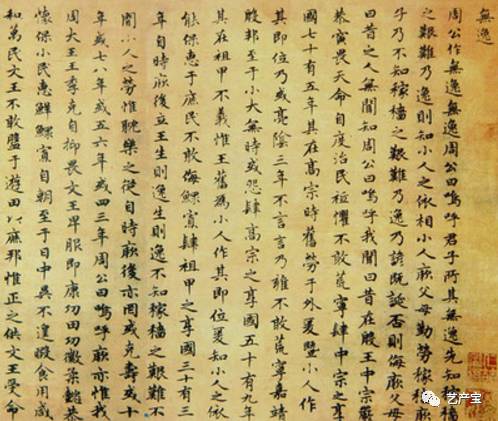 無逸
周公作無逸無逸周公曰嗚呼君子所其無逸先知稼穡
之艱難乃逸則知小人之依相小人厥父母勤勞稼穡厥
子乃不知稼穡之艱難乃逸乃諺既誕否則侮厥父母
曰昔之人無聞知周公曰嗚呼我聞曰昔在殷王中宗嚴
恭寅畏天命自度治民祗懼不敢荒寧肆中宗之享
國七十有五年其在高宗時舊勞于外爰暨小人作
其即位乃或亮陰三年不言言乃雍不敢荒寧嘉靖
殷邦至于小大無時或怨肆高宗之享國五十有九年
其在祖甲不義惟王舊爲小人作其即位爰知小人之依
能保惠于庶民不敢侮鰥寡肆祖甲之享國三十有三
年自時厥後立王生則逸不知稼穡之艱難不
聞小人之勞惟耽樂之從自時厥後亦罔或克壽或十
年或七八年或五六年或四三年周公曰嗚呼厥亦惟我
周大王王季克自抑畏文王卑服即康功田功徽柔懿恭
懷保小民惠鮮鰥寡自朝至于日中昃不遑暇食用咸
和萬民文王不敢盤于遊田以庶邦惟正之供文王受命
艺产宝